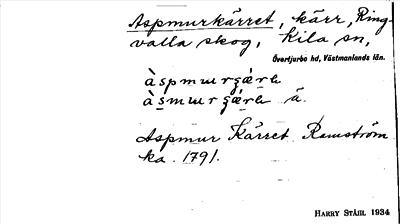 Aspmurkärret, kärr, Ring-
valla skog, Kila sn,
Övertjurbo hd, Västmanlands län.
àspmɯrɡǽrə
àsmɯrɡǽrə ä.
Aspmur Kärret Ramström
ka. 1791.
HARRY STÅHL 1934